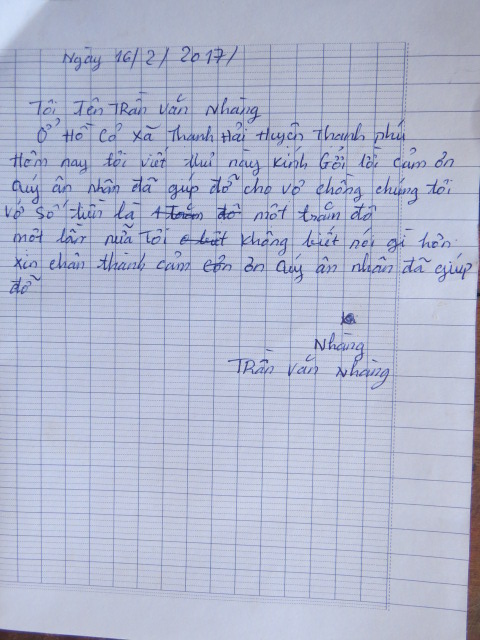 Ngày 16/2/2017/
Tôi Tên TRần Văn Nhàng
Ở Hồ Cỏ Xã Thạnh Hải Huyện Thạnh phú
Hôm nay tôi viết thư này Kính Gởi lời cảm ơn
Quý ân nhân đã gúp đỡ cho vợ chồng chúng tôi
Vớ số tiền là 1 trăm đô một trăm đô
một lần nữa Tôi không biết nói gì hơn
Xin chân thành cảm ơn Quý ân nhân đã giúp
đỡ
Nhàng
TRần Văn Nhàng